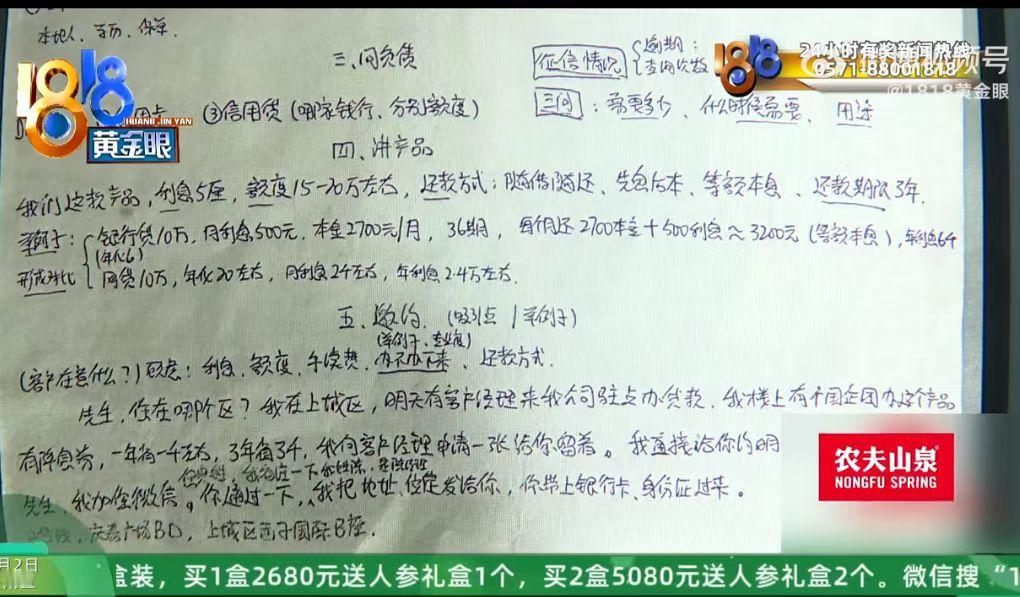 本地人、学历、保单.
三、问负债
征信情况 { 逾期:
查询次数
24小时有奖新闻热线
0571-88001818
视频号
@1818黄金眼
1818
HUANG JIN YAN
黄金眼
1818
③信用贷 (哪家银行、分别额度)
三问 : 需要多少、什么时候需要、用途
四、讲产品
我们这款产品,利息5厘,额度15-20万左右,还款方式:随借随还、先息后本、等额本息、还款期限3年.
举例子: 银行贷10万,月利息500元.本金2700元/月,36期,每个月还2700本金+500利息≈3200元(等额本息),年利息6千
(年化6)
形成对比 网贷10万,年化20左右,月利息2千左右,年利息2.4万左右.
五、邀约. (吸引点 / 举例子)
(举例子、专业度)
(客户在意什么?)顾虑:利息、额度、手续费、办不办下来、还款方式.
先生,你在哪个区?我在上城区,明天有客户经理来我公司驻点办贷款,我楼上有个国企团办这个产品
有降息券,一年省一千左右,3年省3千,我向客户经理申请一张给你留着。我直接给你约明
先生,我加您微信,你通过一下,我把地址、位定发给你,你带上银行卡、身份证过来。
庆春广场BD,上城区西子国际B座.
农夫山泉
NONGFU SPRING
月2日
盒装,买1盒2680元送人参礼盒1个,买2盒5080元送人参礼盒2个。微信搜“1